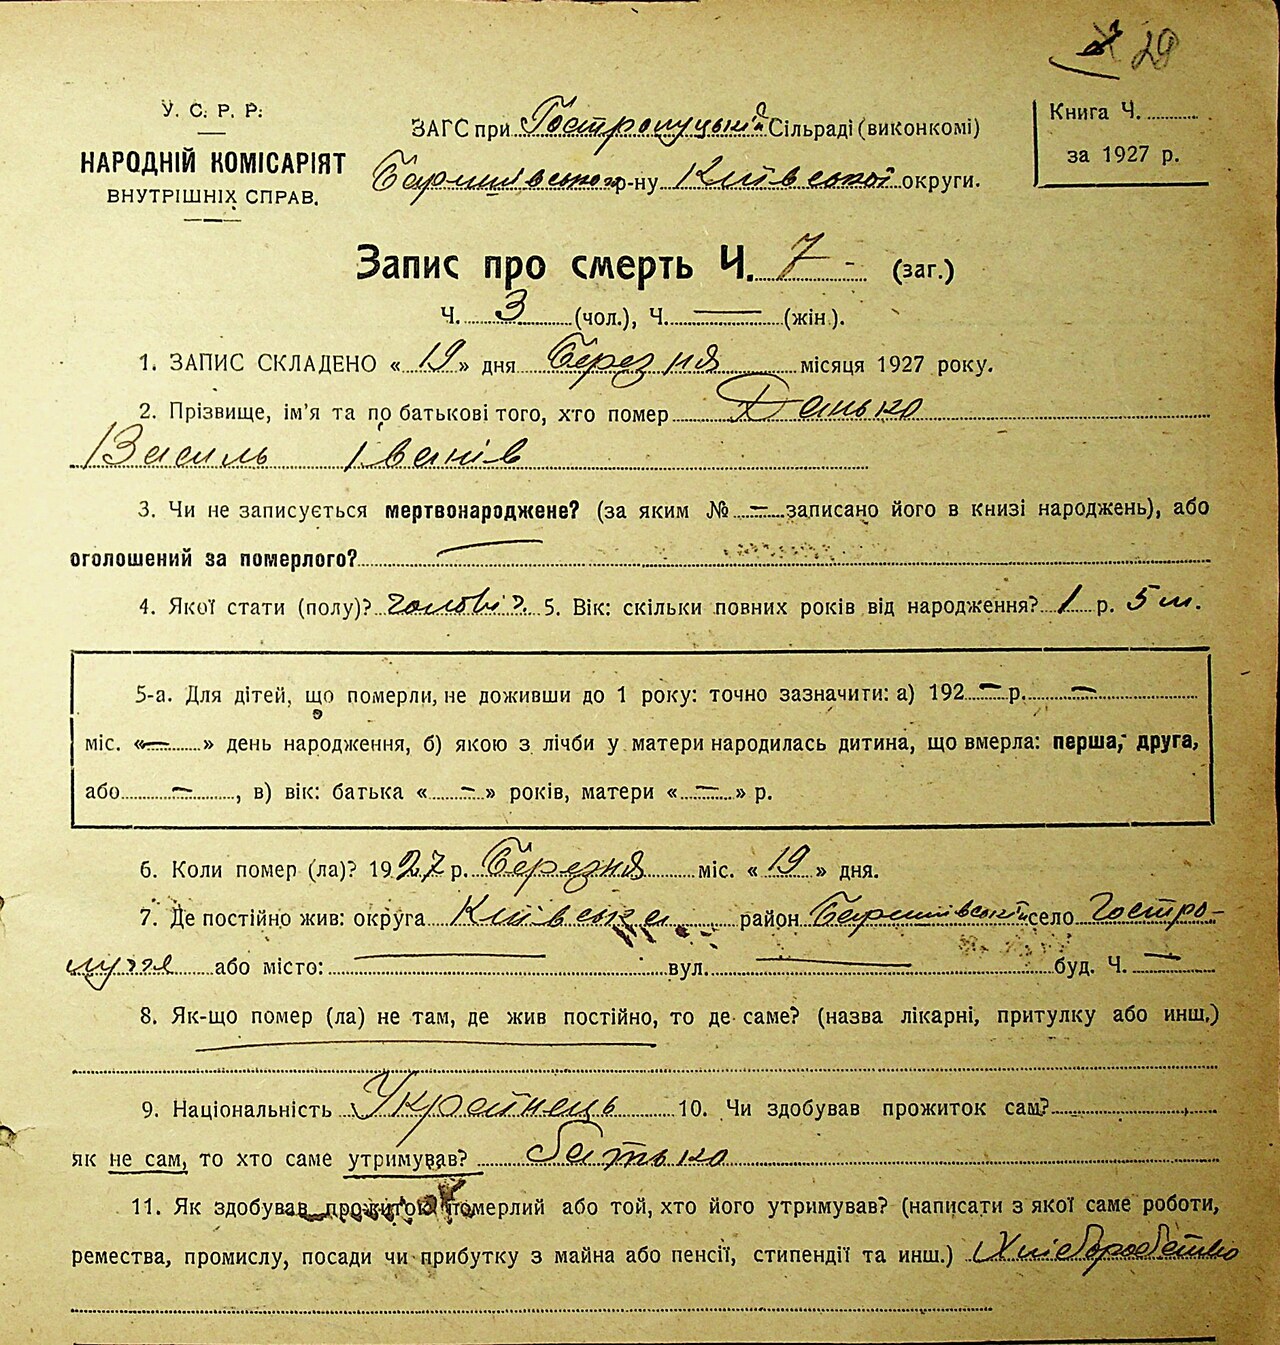 29
У. С. Р. Р.
НАРОДНІЙ КОМІСАРІЯТ
ВНУТРІШНІХ СПРАВ.
ЗАГС при Гостролуцькій Сільраді (виконкомі)
Баришівського р-ну Київської округи.
Книга Ч.
за 1927 р.
Запис про смерть Ч. 7 - (заг.)
Ч. 3 (чол.), Ч. — (жін.).
1. ЗАПИС СКЛАДЕНО « 19 » дня березня місяця 1927 року.
2. Прізвище, ім'я та по батькові того, хто помер Данько
Василь Іванів
3. Чи не записується мертвонароджене? (за яким № — записано його в книзі народжень), або
оголошений за померлого? —
4. Якої стати (полу)? чоловіч. 5. Вік: скільки повних років від народження? 1 р. 5 м.
5-а. Для дітей, що померли, не доживши до 1 року: точно зазначити: а) 192 — р. —
міс. « — » день народження, б) якою з лічби у матери народилась дитина, що вмерла: перша, друга,
або — , в) вік: батька « — » років, матери « — » р.
6. Коли помер (ла)? 1927 р. березня міс. « 19 » дня.
7. Де постійно жив: округа Київська район Баришівський село Гостро-
луччя або місто: — вул. — буд. Ч. —
8. Як-що помер (ла) не там, де жив постійно, то де саме? (назва лікарні, притулку або инш,)
9. Національність Українець 10. Чи здобував прожиток сам?
як не сам, то хто саме утримував? батько
11. Як здобував прожиток померлий або той, хто його утримував? (написати з якої саме роботи,
ремества, промислу, посади чи прибутку з майна або пенсії, стипендії та инш.) Хліборобство